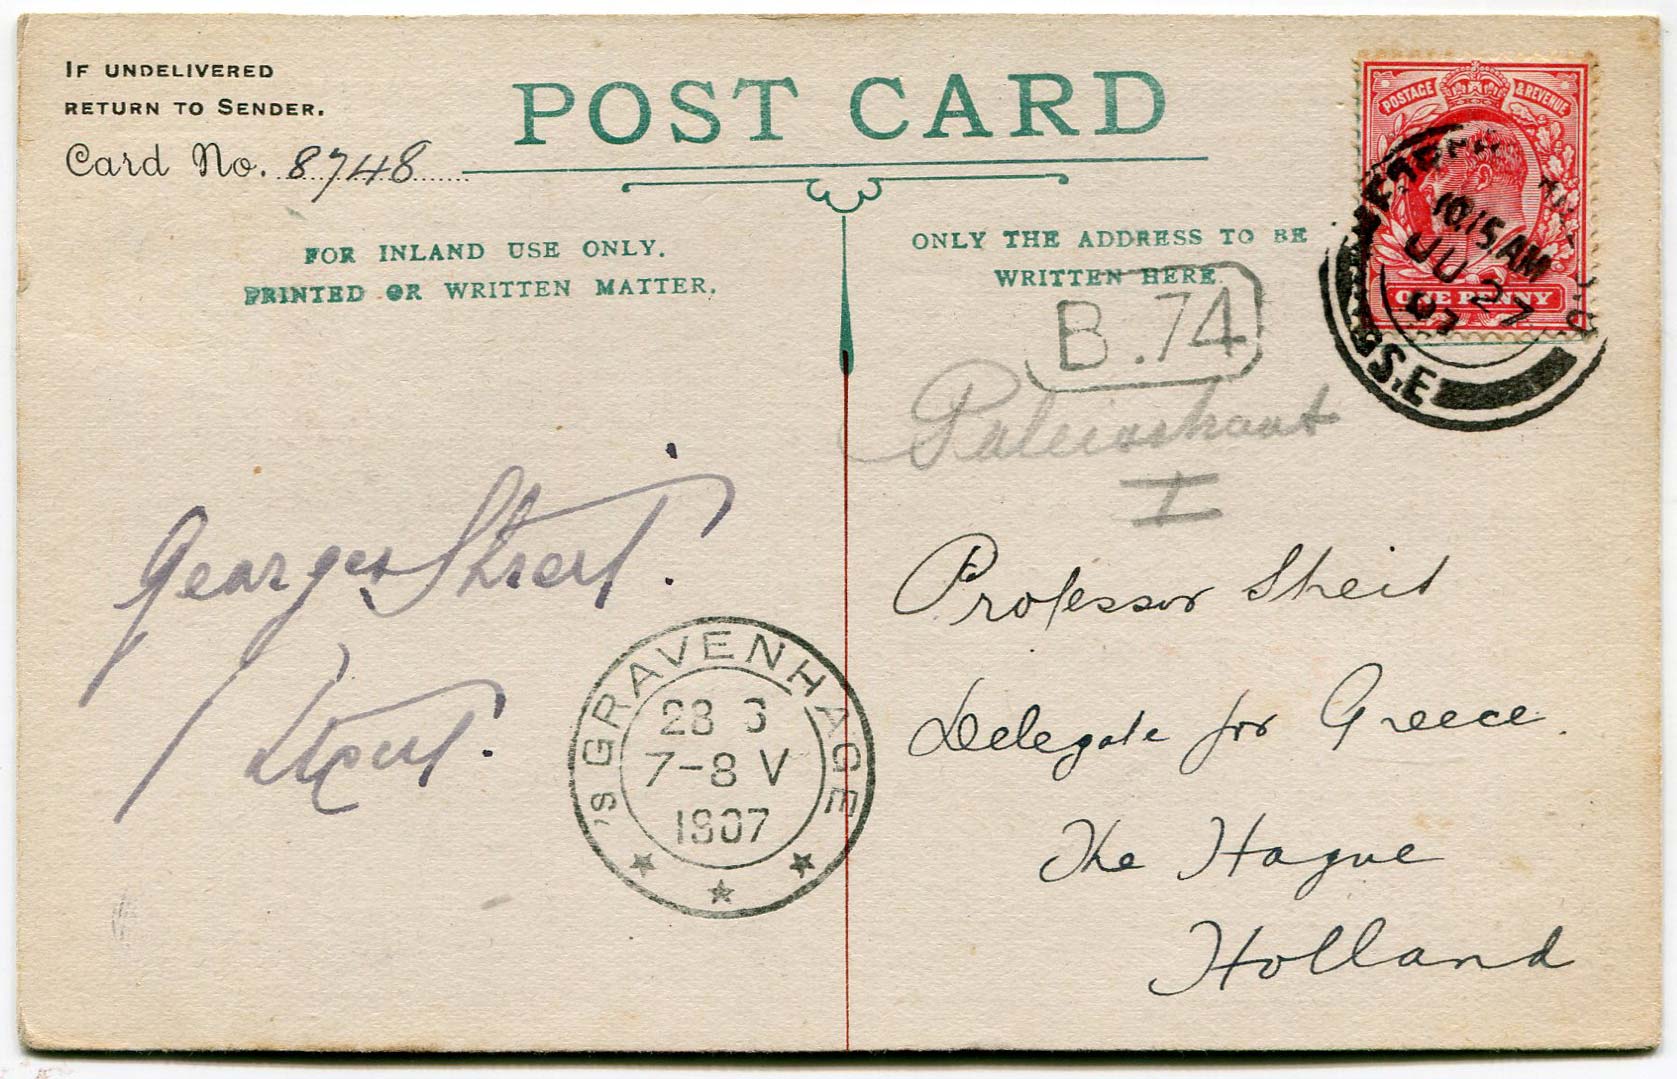 IF UNDELIVERED
RETURN TO SENDER.
Card No. 8748
POST CARD
FOR INLAND USE ONLY.
PRINTED OR WRITTEN MATTER.
ONLY THE ADDRESS TO BE
WRITTEN HERE.
POSTAGE & REVENUE
ONE PENNY
10.15 AM
JU 27
07
S.E
B.74
Georges Streit.
's GRAVENHAGE
28 6
7-8 V
1907
Professor Streit
Delegate for Greece.
The Hague
Holland